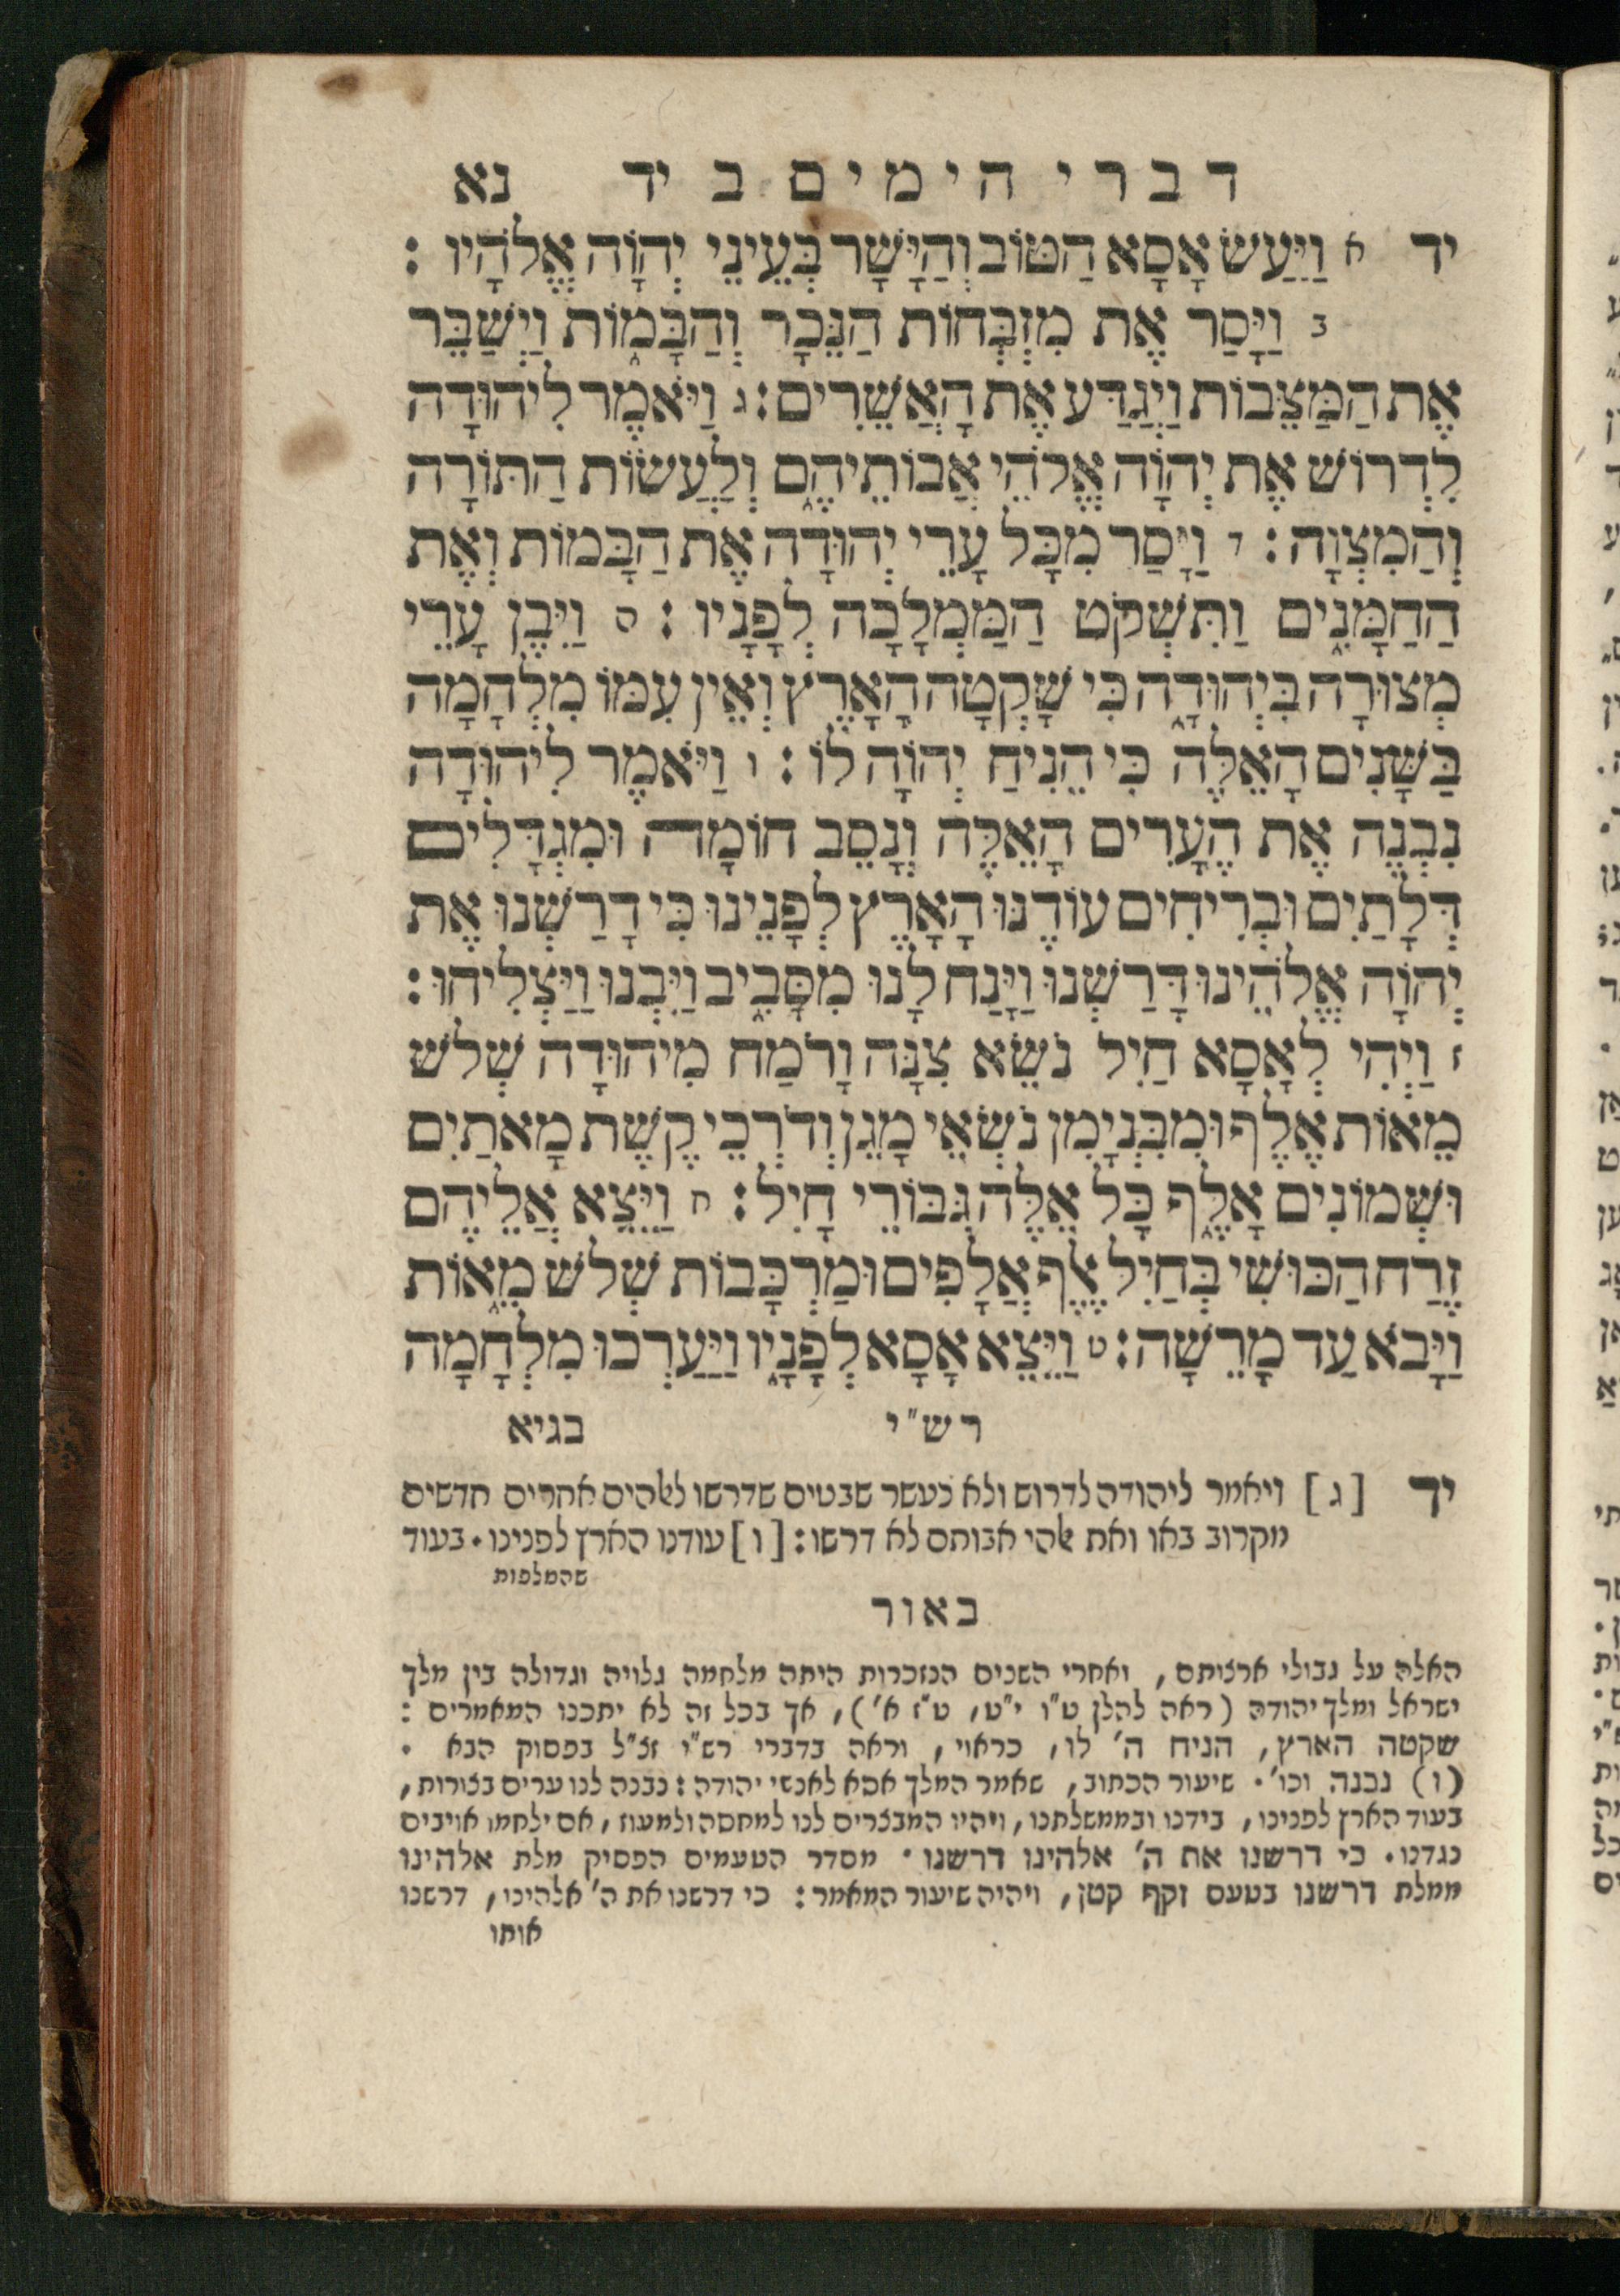 דברי הימים ב יד נא
יד א וַיַּעַשׂ אָסָא הַטּוֹב וְהַיָּשָׁר בְּעֵינֵי יְהוָֹה אֱלֹהָיו :
ב וַיָּסַר אֶת מִזְבְּחוֹת הַנֵּכָר וְהַבָּמוֹת וַיְשַׁבֵּר
אֶת הַמַּצֵּבוֹת וַיְגַדַּע אֶת הָאֲשֵׁרִים : ג וַיֹּאמֶר לִיהוּדָה
לִדְרוֹשׁ אֶת יְהוָֹה אֱלֹהֵי אֲבוֹתֵיהֶם וְלַעֲשׂוֹת הַתּוֹרָה
וְהַמִּצְוָה : ד וַיָּסַר מִכָּל עָרֵי יְהוּדָה אֶת הַבָּמוֹת וְאֶת
הַחַמָּנִים וַתִּשְׁקֹט הַמַּמְלָכָה לְפָנָיו : ה וַיִּבֶן עָרֵי
מְצוּרָה בִּיהוּדָה כִּי שָׁקְטָה הָאָרֶץ וְאֵין עִמּוֹ מִלְחָמָה
בַּשָּׁנִים הָאֵלֶּה כִּי הֵנִיחַ יְהוָֹה לוֹ : ו וַיֹּאמֶר לִיהוּדָה
נִבְנֶה אֶת הֶעָרִים הָאֵלֶּה וְנָסֵב חוֹמָה וּמִגְדָּלִים
דְּלָתַיִם וּבְרִיחִים עוֹדֶנּוּ הָאָרֶץ לְפָנֵינוּ כִּי דָרַשְׁנוּ אֶת
יְהוָֹה אֱלֹהֵינוּ דָּרַשְׁנוּ וַיָּנַח לָנוּ מִסָּבִיב וַיִּבְנוּ וַיַּצְלִיחוּ :
ז וַיְהִי לְאָסָא חַיִל נֹשֵׂא צִנָּה וָרֹמַח מִיהוּדָה שְׁלֹשׁ
מֵאוֹת אֶלֶף וּמִבִּנְיָמִן נֹשְׂאֵי מָגֵן וְדֹרְכֵי קֶשֶׁת מָאתַיִם
וּשְׁמוֹנִים אָלֶף כָּל אֵלֶּה גִּבּוֹרֵי חָיִל : ח וַיֵּצֵא אֲלֵיהֶם
זֶרַח הַכּוּשִׁי בְּחַיִל אֶלֶף אֲלָפִים וּמַרְכָּבוֹת שְׁלֹשׁ מֵאוֹת
וַיָּבֹא עַד מָרֵשָׁה : ט וַיֵּצֵא אָסָא לְפָנָיו וַיַּעַרְכוּ מִלְחָמָה
רש״י בגיא
יד [ג] ויאמר ליהודה לדרוש ולא כעשר שבטים שדרשו לאלהים אחרים חדשים
מקרוב באו ואת אלהי אבותם לא דרשו : [ו] עודנו הארץ לפנינו . בעוד
שהמלכות
באור
האלה על גבולי ארצותם , ואחרי השנים הנזכרות היתה מלחמה גלויה וגדולה בין מלך
ישראל ומלך יהודה (ראה להלן ט״ו י״ט, ט״ז א׳), אך בכל זה לא יתכנו המאמרים :
שקטה הארץ, הניח ה׳ לו, כראוי, וראה בדברי רש״י זצ״ל בפסוק הבא .
(ו) נבנה וכו׳. שיעור הכתוב, שאמר המלך אסא לאנשי יהודה : נבנה לנו ערים בצורות,
בעוד הארץ לפנינו, בידנו ובממשלתנו, ויהיו המבצרים לנו למחסה ולמעוז, אם ילחמו אויבים
נגדנו. כי דרשנו את ה׳ אלהינו דרשנו . מסדר הטעמים הפסיק מלת אלהינו
ממלת דרשנו בטעם זקף קטן, ויהיה שיעור המאמר : כי דרשנו את ה׳ אלהינו, דרשנו
אותו